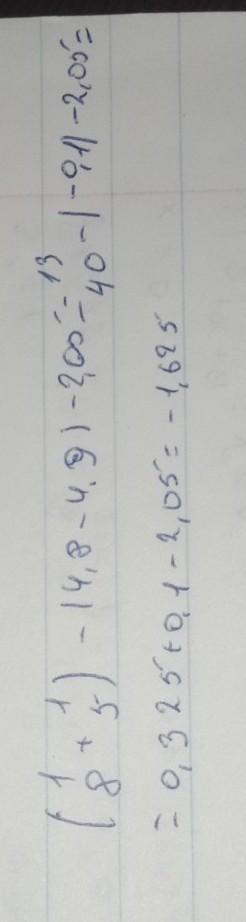 (1/8 + 1/5) - (4,8 - 4,9) - 2,05 = 13/40 - (-0,1) - 2,05 =
= 0,325 + 0,1 - 2,05 = -1,625